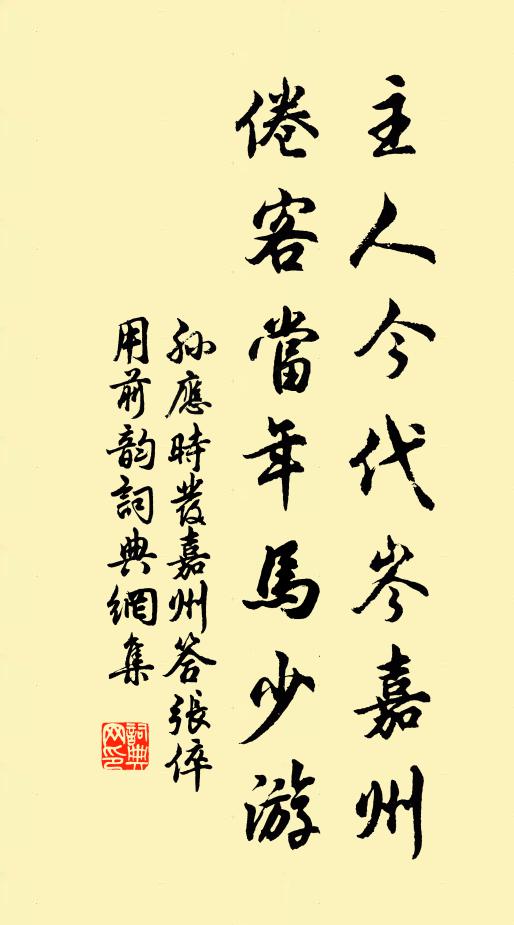 主人今代岑嘉州
倦客當年馬少游
孫應時發嘉州答張倅
用前韵詞典網集
詞典网印